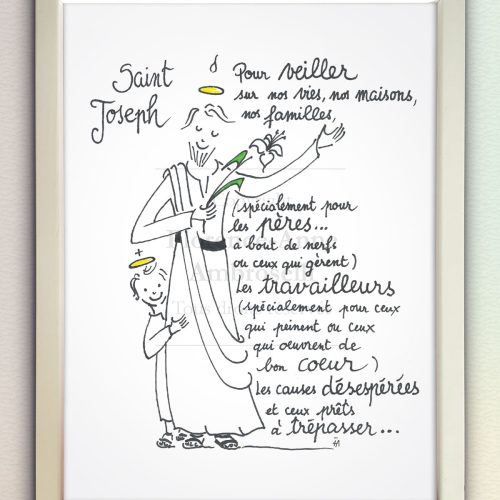 Saint
Joseph
Pour veiller
sur nos vies, nos maisons,
nos familles,
(spécialement pour
les pères...
à bout de nerfs
ou ceux qui gèrent)
les travailleurs
(spécialement pour ceux
qui peinent ou ceux
qui œuvrent de
bon coeur)
les causes désespérées
et ceux prêts
à trépasser...